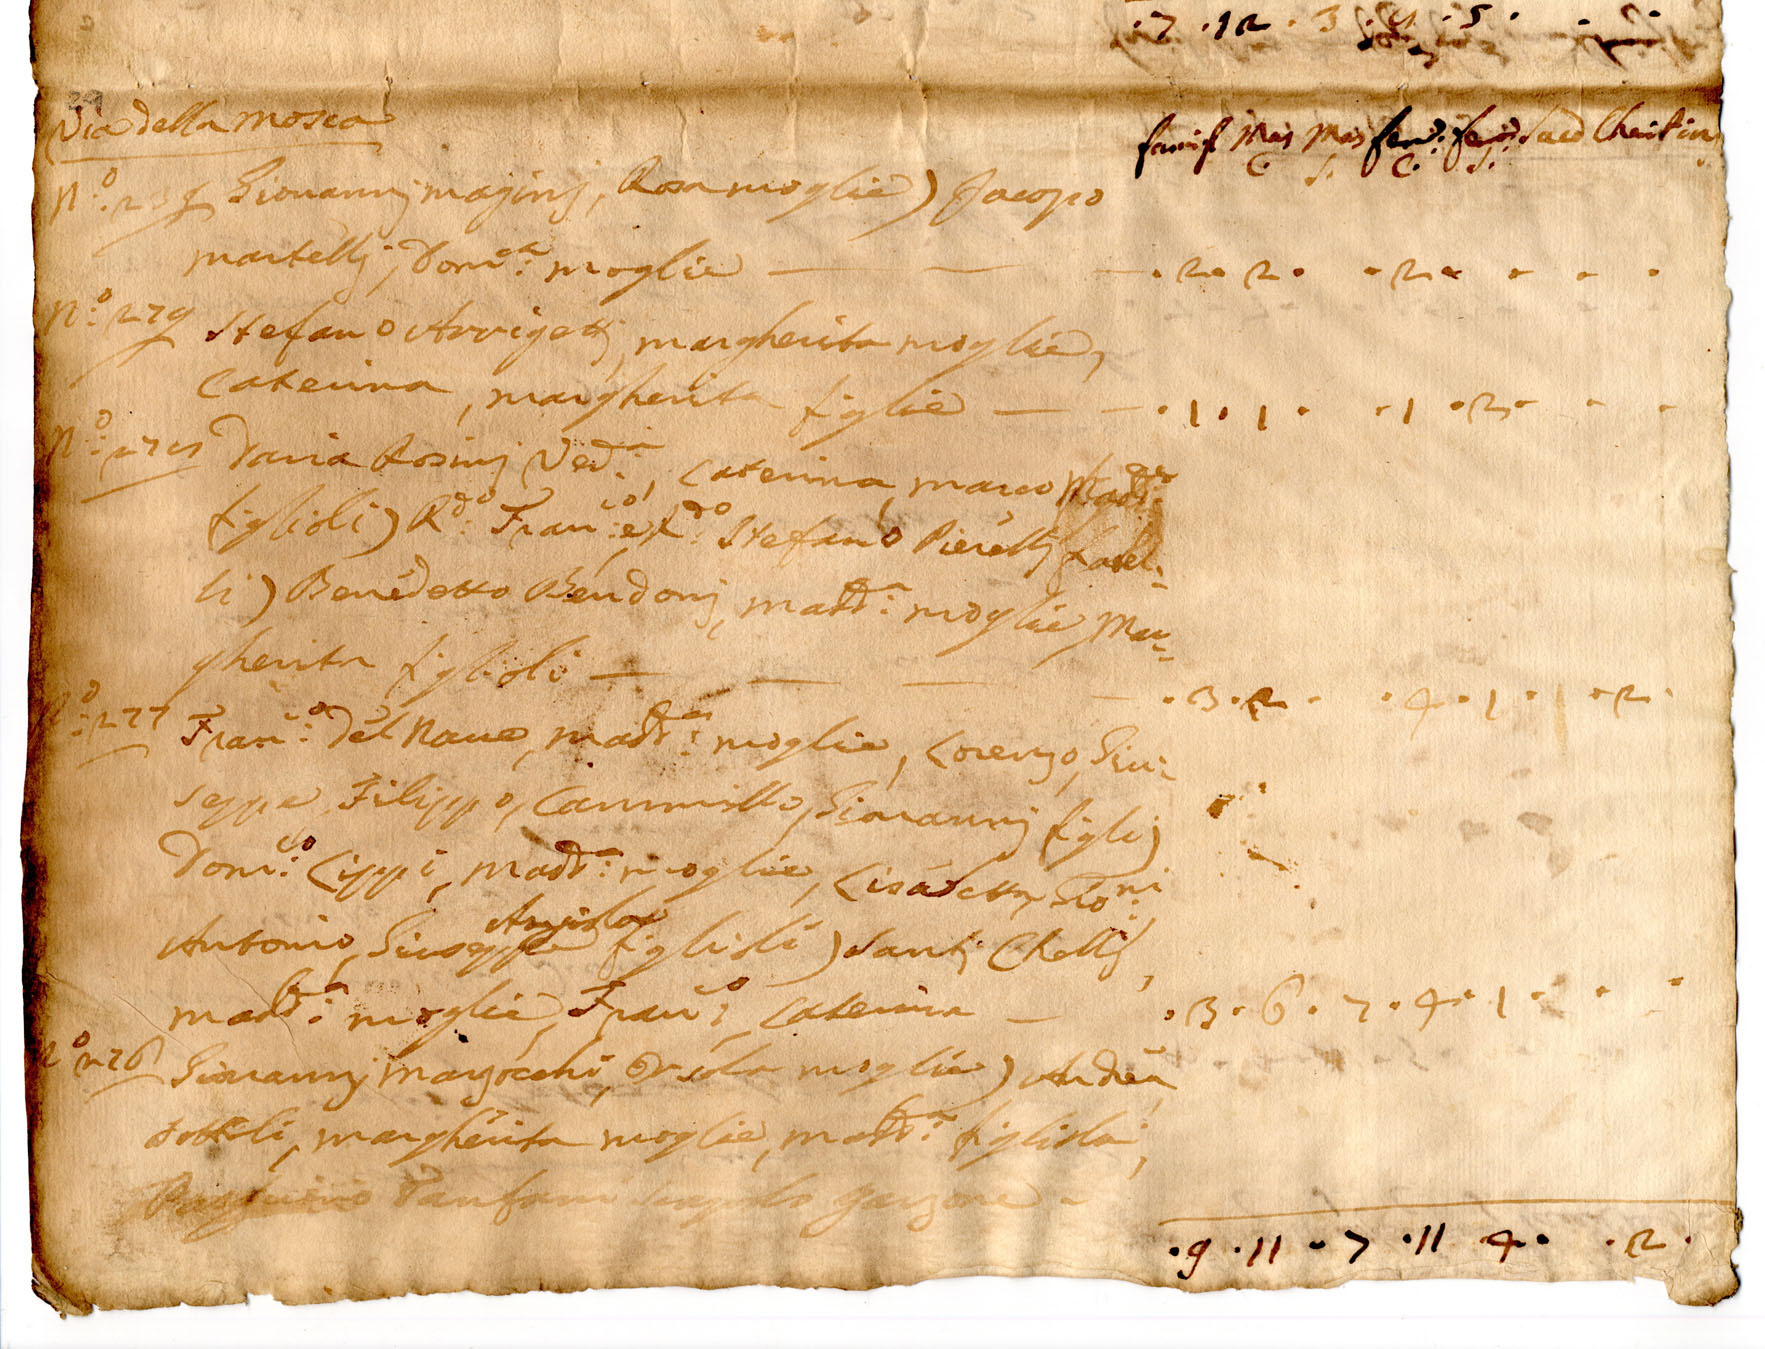 · 7 · 12 · 3 · 5 ·
29
Via della Mosca
famig Mas Mas fem: fem: Sacd Cherici
C. S. C. S.
N:o Giovannj maginj, Rosa moglie) Jacopo
martellj, Dom:ca moglie — — — · 2 · 2 · · 2 · · · ·
N:o 279 Stefano Arrigettj, margherita moglie,
Caterina, margherita figlie — — · 1 · 1 · · 1 · 2 · · ·
N:o Rosinj Ved:a, Caterina, marco Madd:a
figlioli) R:do Fran:co, e R:do Stefano Pierettj fratel:
li) Benedetto Bendonj, madd:a moglie, Mar=
gherita figlioli — — — — · 3 · 2 · · 4 · 1 · 1 · 2 ·
N:o 277 Fran:co Del Naue, madd:a moglie, Lorenzo, Giu:
seppe, Filippo, Cammillo, Giovannj figlj)
Dom:co Lippi, madd:a moglie, Lisabetta, Gio:ni
Angiola
Antonio, Giuseppe figlioli) Santj Chellj,
madd:a moglie, Fran:co, Caterina — · 3 · 6 · 7 · 4 · 1 · · ·
N:o 276 Giovannj marzocchi, Orsola moglie) Andrea
margherita moglie, madd:a figliola,
Panfani garzone
· 9 · 11 · 7 · 11 4 · · 2 ·